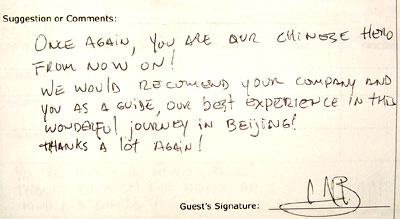 Suggestion or Comments:
ONCE AGAIN, YOU ARE OUR CHINESE HERO
FROM NOW ON!
WE WOULD RECOMEND YOUR COMPANY AND
YOU AS A GUIDE, OUR BEST EXPERIENCE IN THIS
WONDERFUL JOURNEY IN BEIJING!
THANKS A LOT AGAIN!
Guest's Signature: